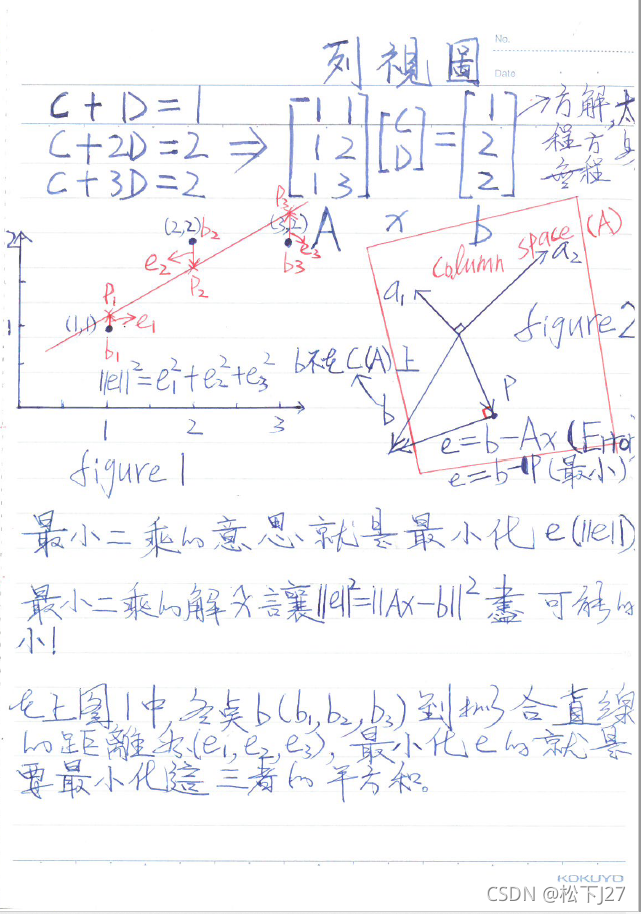 No.
Date
列視圖
C+D=1
C+2D=2
C+3D=2
⇒ [1 1; 1 2; 1 3] [C; D] = [1; 2; 2]
方解,太
程方
程
A x b
2
1
1 2 3
(1,1)
(2,2) b₂
(3,2)
b₁
b₃
P₁
P₂
P₃
e₁
e₂
e₃
||e||²=e₁²+e₂²+e₃²
figure 1
column space (A)
a₁
a₂
figure 2
b不在C(A)上
b
P
e=b-Ax (Erro
e=b-P(最小)
最小二乘的意思就是最小化e(||e||)
最小二乘的解会讓||e||²=||Ax-b||²盡可能的
小!
在上图1中,各点b(b₁,b₂,b₃)到拟合直線
的距離为(e₁,e₂,e₃),最小化e的就是
要最小化這三者的平方和。
KOKUYO
CSDN @松下J27